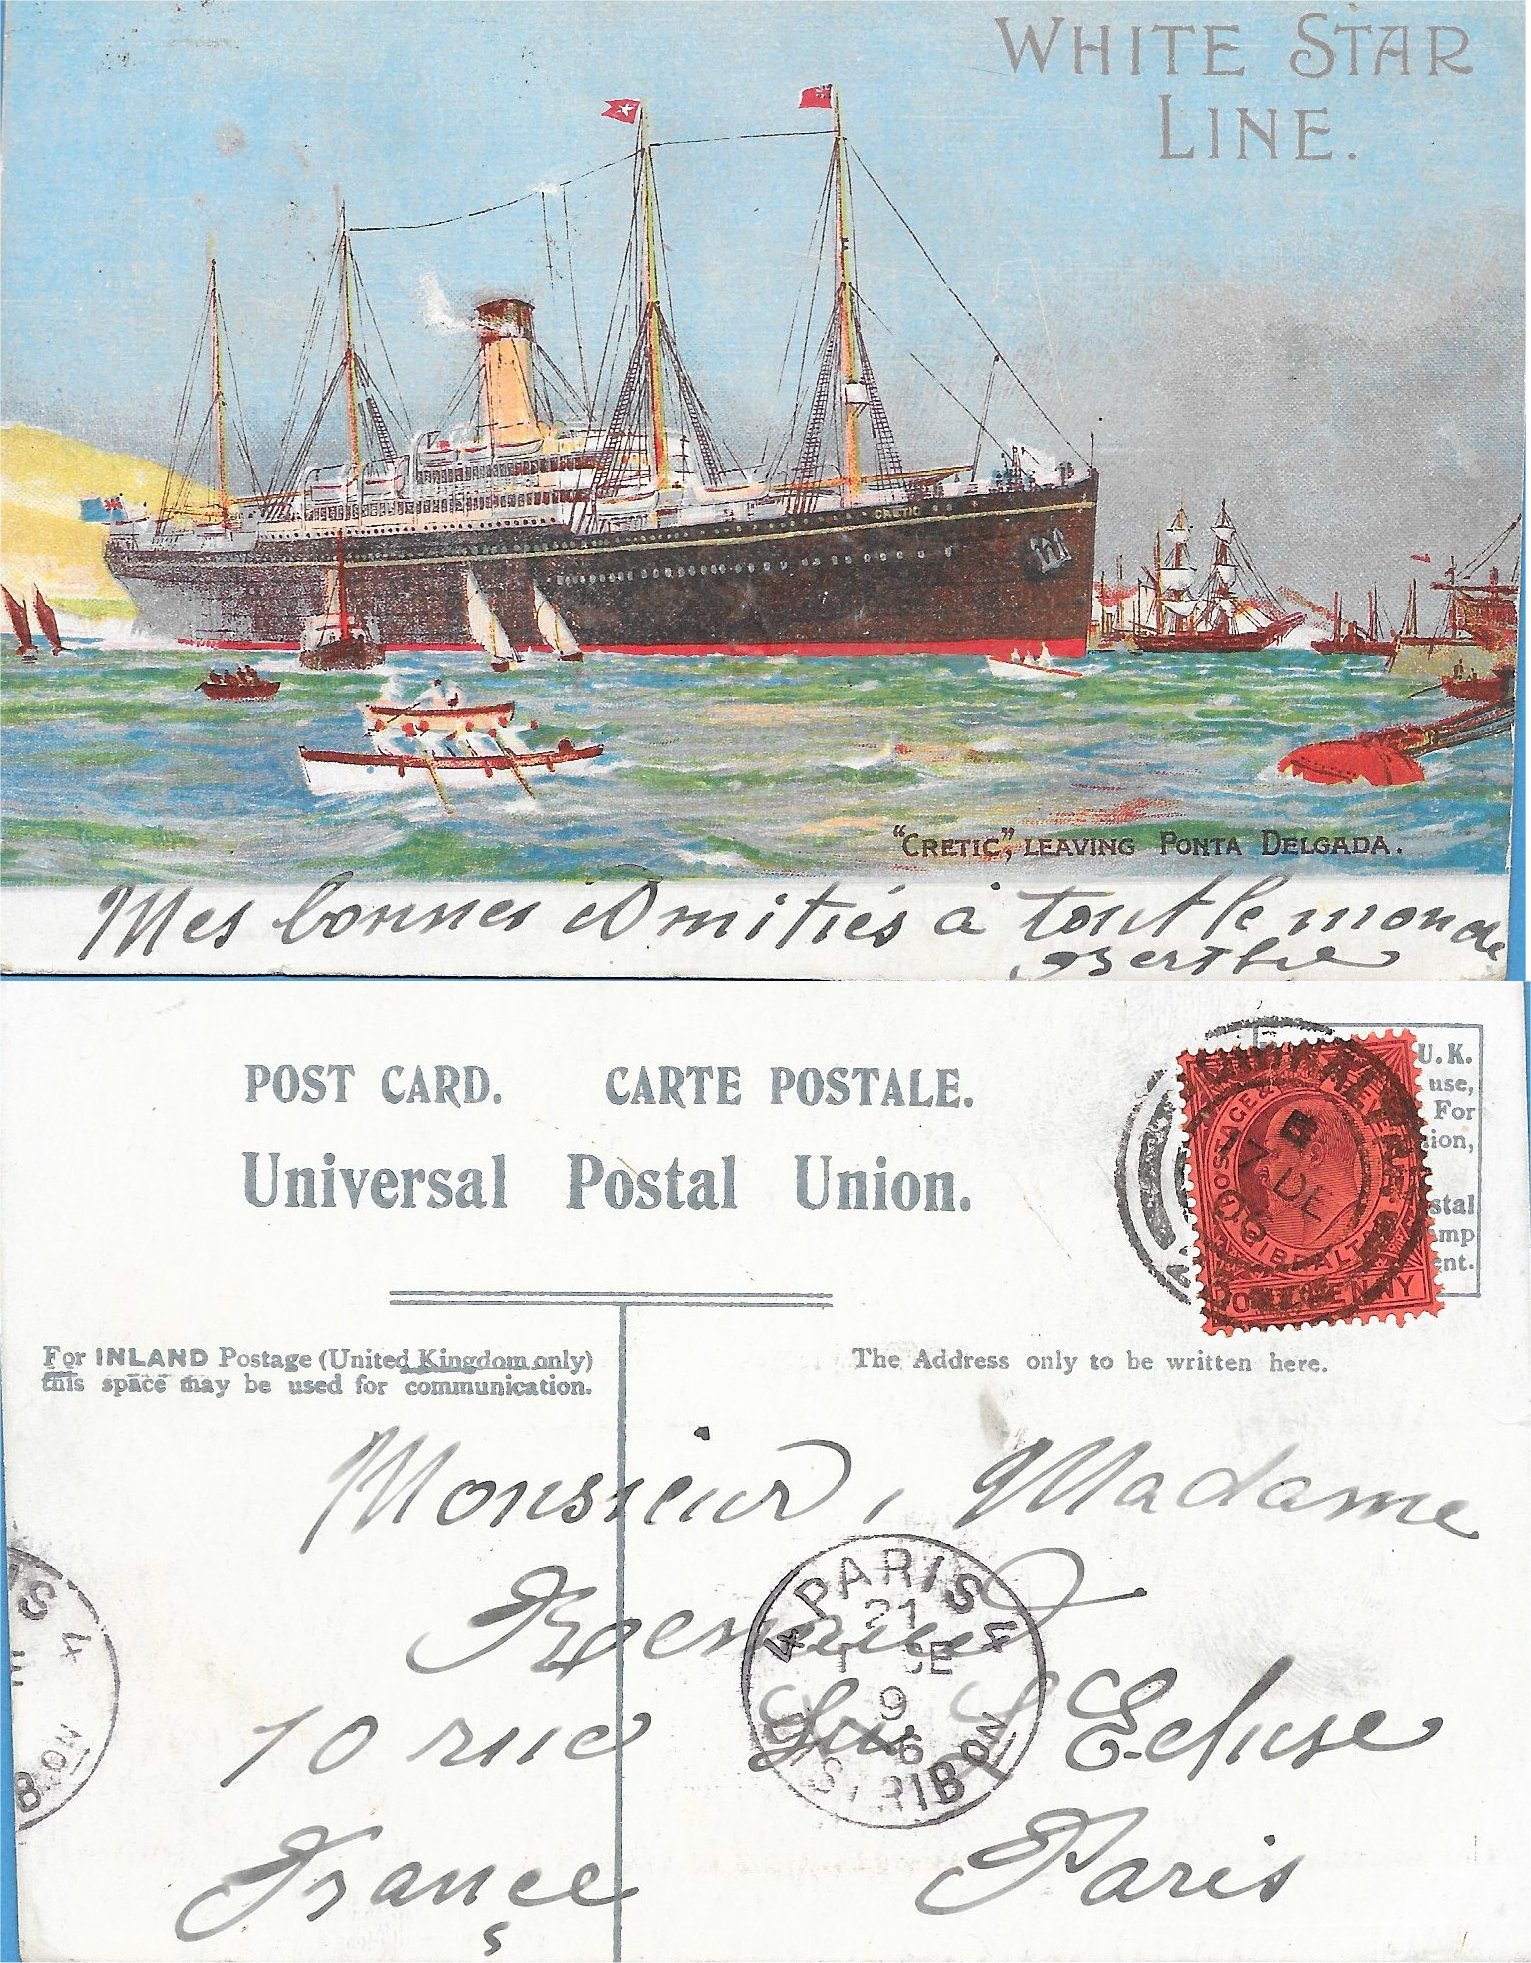 WHITE STAR
LINE.
CRETIC
"CRETIC", LEAVING PONTA DELGADA.
Mes bonnes Amitiés à tout le monde
Berthe
POST CARD. CARTE POSTALE.
Universal Postal Union.
U.K.
use,
For
stal
GIBRALTAR
DE
POSTAGE & REVENUE
GIBRALTAR
ONE PENNY
For INLAND Postage (United Kingdom only)
this space may be used for communication.
The Address only to be written here.
Monsieur, Madame
10 rue Ecluse
France Paris
4 PARIS 4
21
DE
DISTRIBON
4